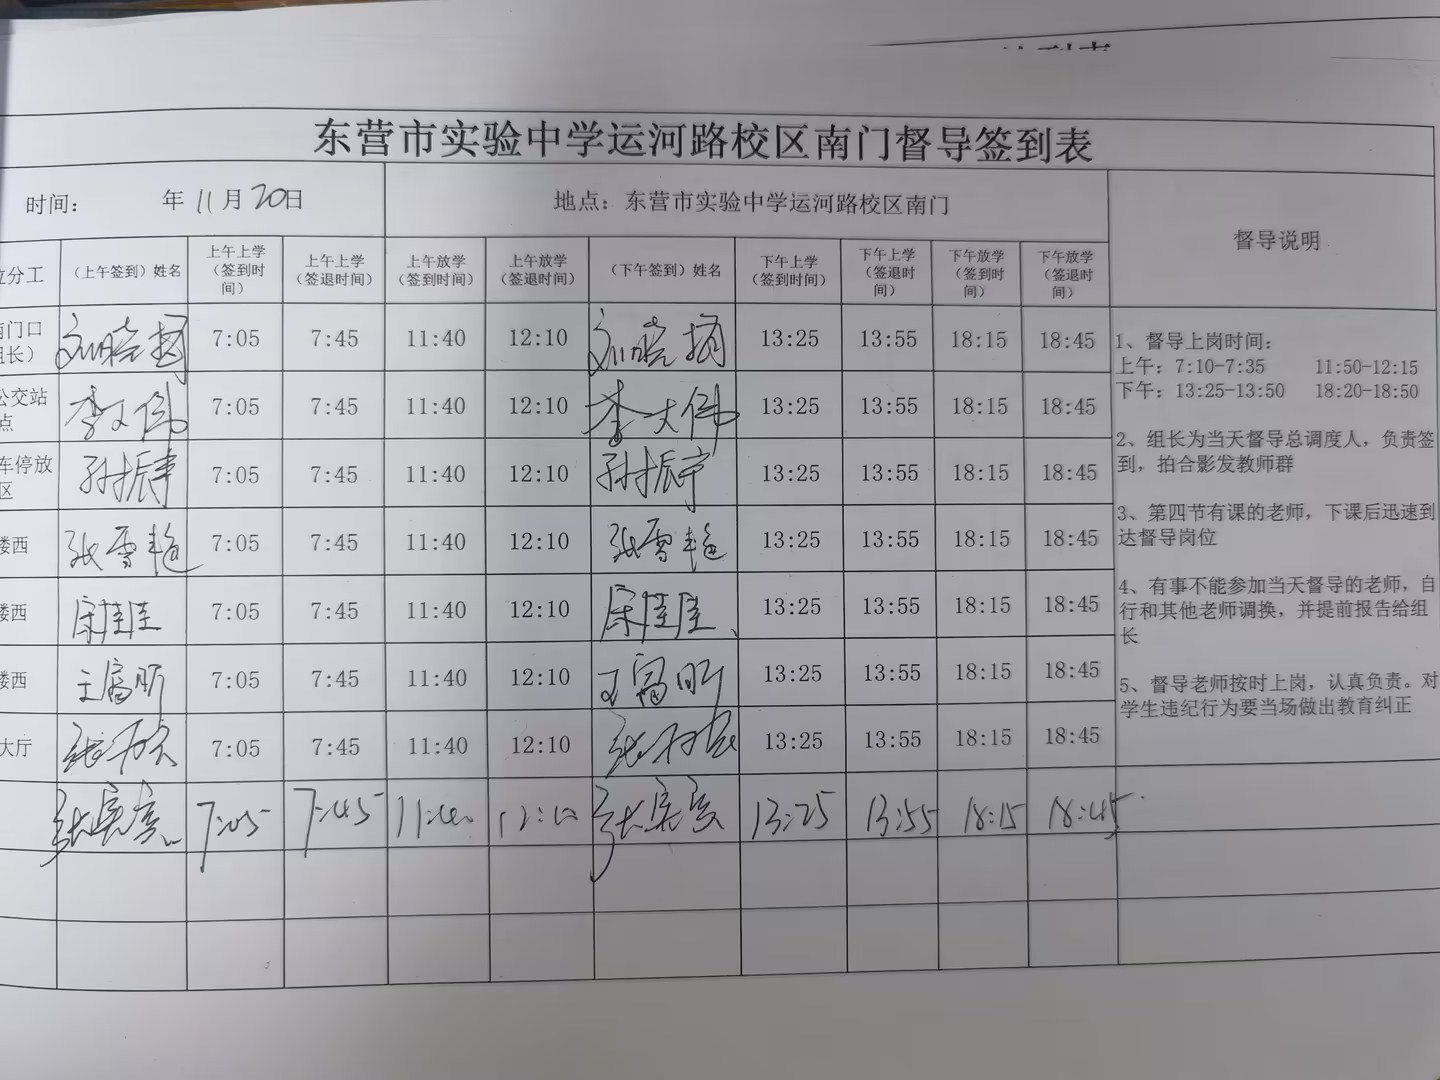 东营市实验中学运河路校区南门督导签到表
时间： 年 11月 20日 地点：东营市实验中学运河路校区南门 督导说明
位分工 （上午签到）姓名 上午上学（签到时间） 上午上学（签退时间） 上午放学（签到时间） 上午放学（签退时间） （下午签到）姓名 下午上学（签到时间） 下午上学（签退时间） 下午放学（签到时间） 下午放学（签退时间）
南门口（组长） 7:05 7:45 11:40 12:10 13:25 13:55 18:15 18:45
公交站点 李文伟 7:05 7:45 11:40 12:10 李文伟 13:25 13:55 18:15 18:45
车停放区 孙振宇 7:05 7:45 11:40 12:10 孙振宇 13:25 13:55 18:15 18:45
楼西 张雪艳 7:05 7:45 11:40 12:10 张雪艳 13:25 13:55 18:15 18:45
楼西 宋佳佳 7:05 7:45 11:40 12:10 宋佳佳 13:25 13:55 18:15 18:45
楼西 王富昕 7:05 7:45 11:40 12:10 王富昕 13:25 13:55 18:15 18:45
大厅 7:05 7:45 11:40 12:10 13:25 13:55 18:15 18:45
7:05 7:45 11:40 12:10 13:25 13:55 18:15 18:45
1、督导上岗时间：
上午：7:10-7:35 11:50-12:15
下午：13:25-13:50 18:20-18:50
2、组长为当天督导总调度人，负责签
到，拍合影发教师群
3、第四节有课的老师，下课后迅速到
达督导岗位
4、有事不能参加当天督导的老师，自
行和其他老师调换，并提前报告给组
长
5、督导老师按时上岗，认真负责。对
学生违纪行为要当场做出教育纠正